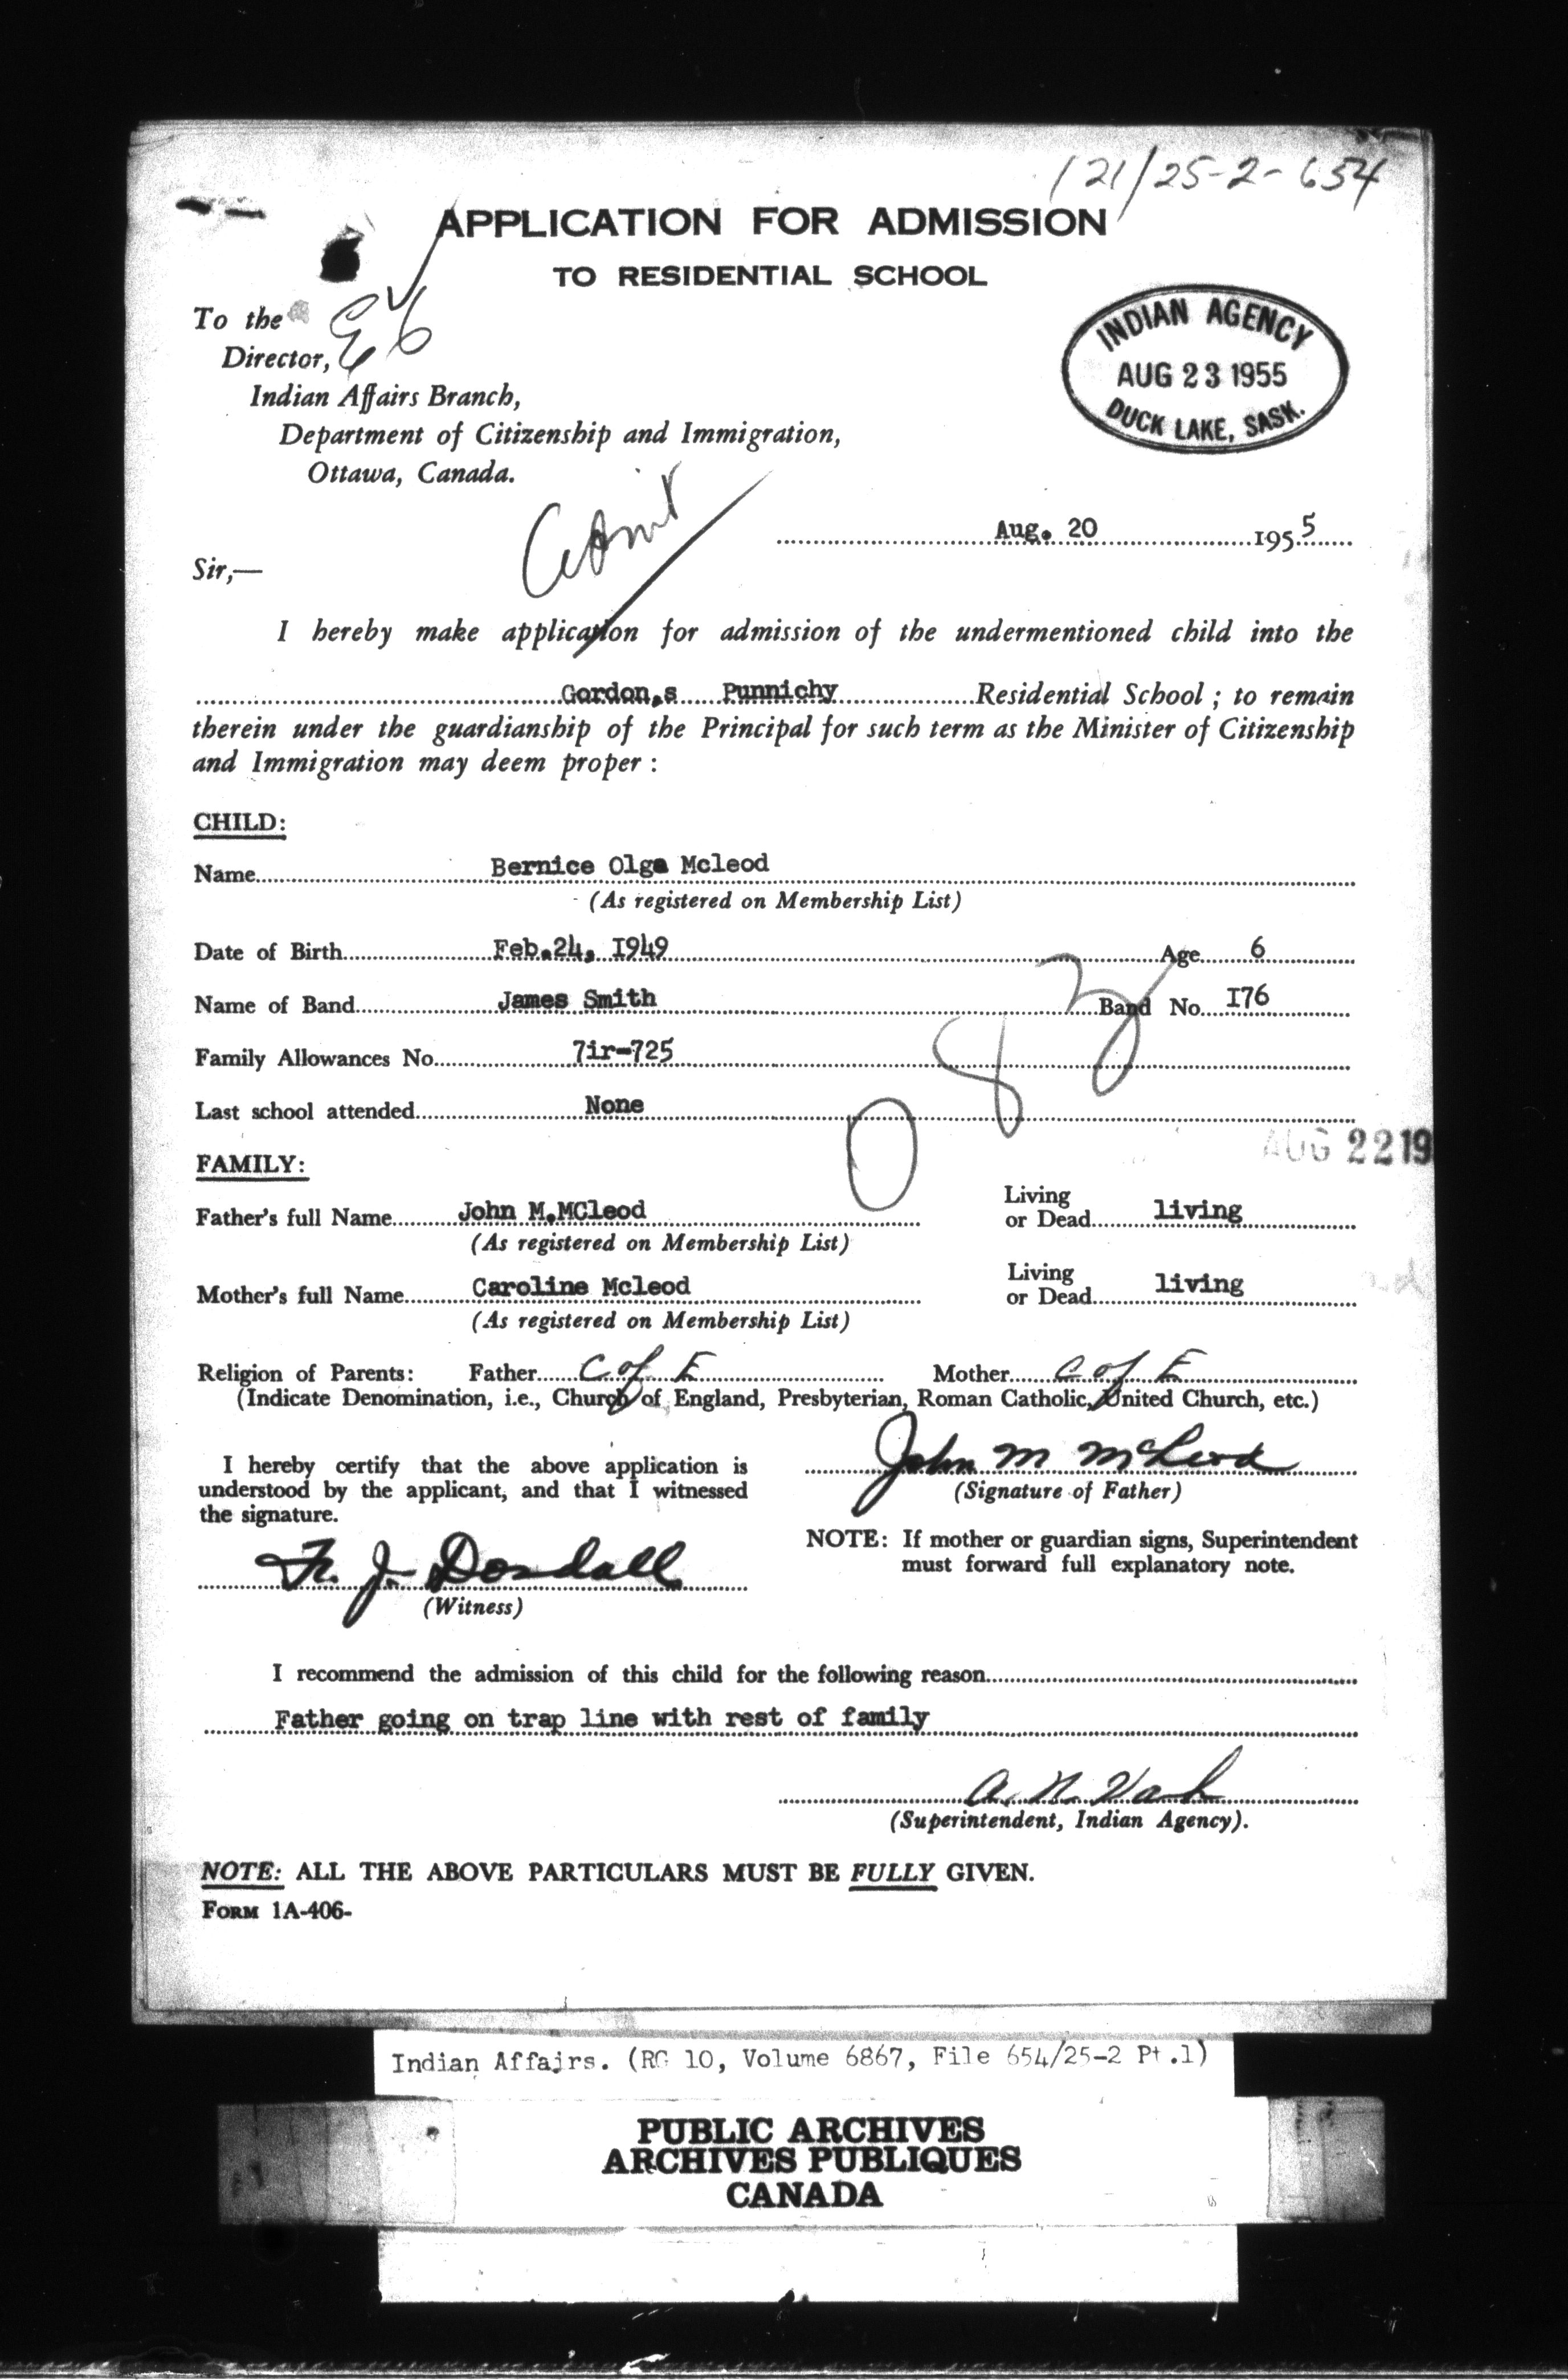 121/25-2-654
APPLICATION FOR ADMISSION
TO RESIDENTIAL SCHOOL
To the
Director,
Indian Affairs Branch,
Department of Citizenship and Immigration,
Ottawa, Canada.
INDIAN AGENCY
AUG 23 1955
DUCK LAKE, SASK.
Admit
Aug. 20 1955
Sir,—
I hereby make application for admission of the undermentioned child into the
Gordon,s Punnichy Residential School ; to remain
therein under the guardianship of the Principal for such term as the Minister of Citizenship
and Immigration may deem proper :
CHILD:
Name Bernice Olga Mcleod
(As registered on Membership List)
Date of Birth Feb.24, I949 Age 6
Name of Band James Smith Band No. I76
Family Allowances No. 7ir-725
Last school attended None
AUG 22 19
FAMILY:
Father's full Name John M.MCleod Living or Dead living
(As registered on Membership List)
Mother's full Name Caroline Mcleod Living or Dead living
(As registered on Membership List)
Religion of Parents: Father C of E Mother C of E
(Indicate Denomination, i.e., Church of England, Presbyterian, Roman Catholic, United Church, etc.)
John M McLeod
(Signature of Father)
I hereby certify that the above application is
understood by the applicant, and that I witnessed
the signature.
NOTE: If mother or guardian signs, Superintendent
must forward full explanatory note.
(Witness)
I recommend the admission of this child for the following reason
Father going on trap line with rest of family
(Superintendent, Indian Agency).
NOTE: ALL THE ABOVE PARTICULARS MUST BE FULLY GIVEN.
FORM 1A-406-
Indian Affairs. (RG 10, Volume 6867, File 654/25-2 Pt.1)
PUBLIC ARCHIVES
ARCHIVES PUBLIQUES
CANADA